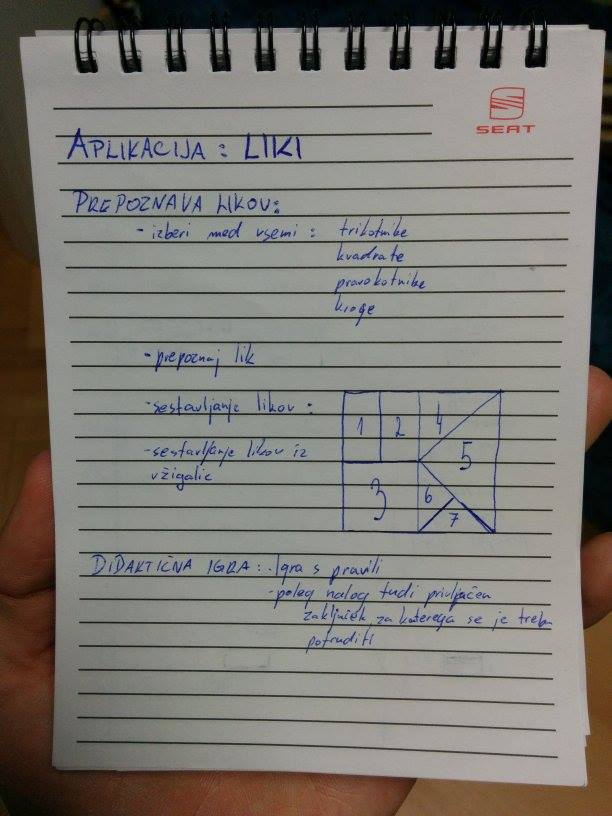 SEAT
APLIKACIJA: LIKI
PREPOZNAVA LIKOV:
- izberi med vsemi: trikotnike
kvadrate
pravokotnike
kroge
- prepoznaj lik
- sestavljanje likov:
- sestavljanje likov iz
vžigalic
1 2 4
5
3 6
7
DIDAKTIČNA IGRA: - Igra s pravili
- poleg nalog tudi privlačen
zaključek, za katerega se je treba
potruditi